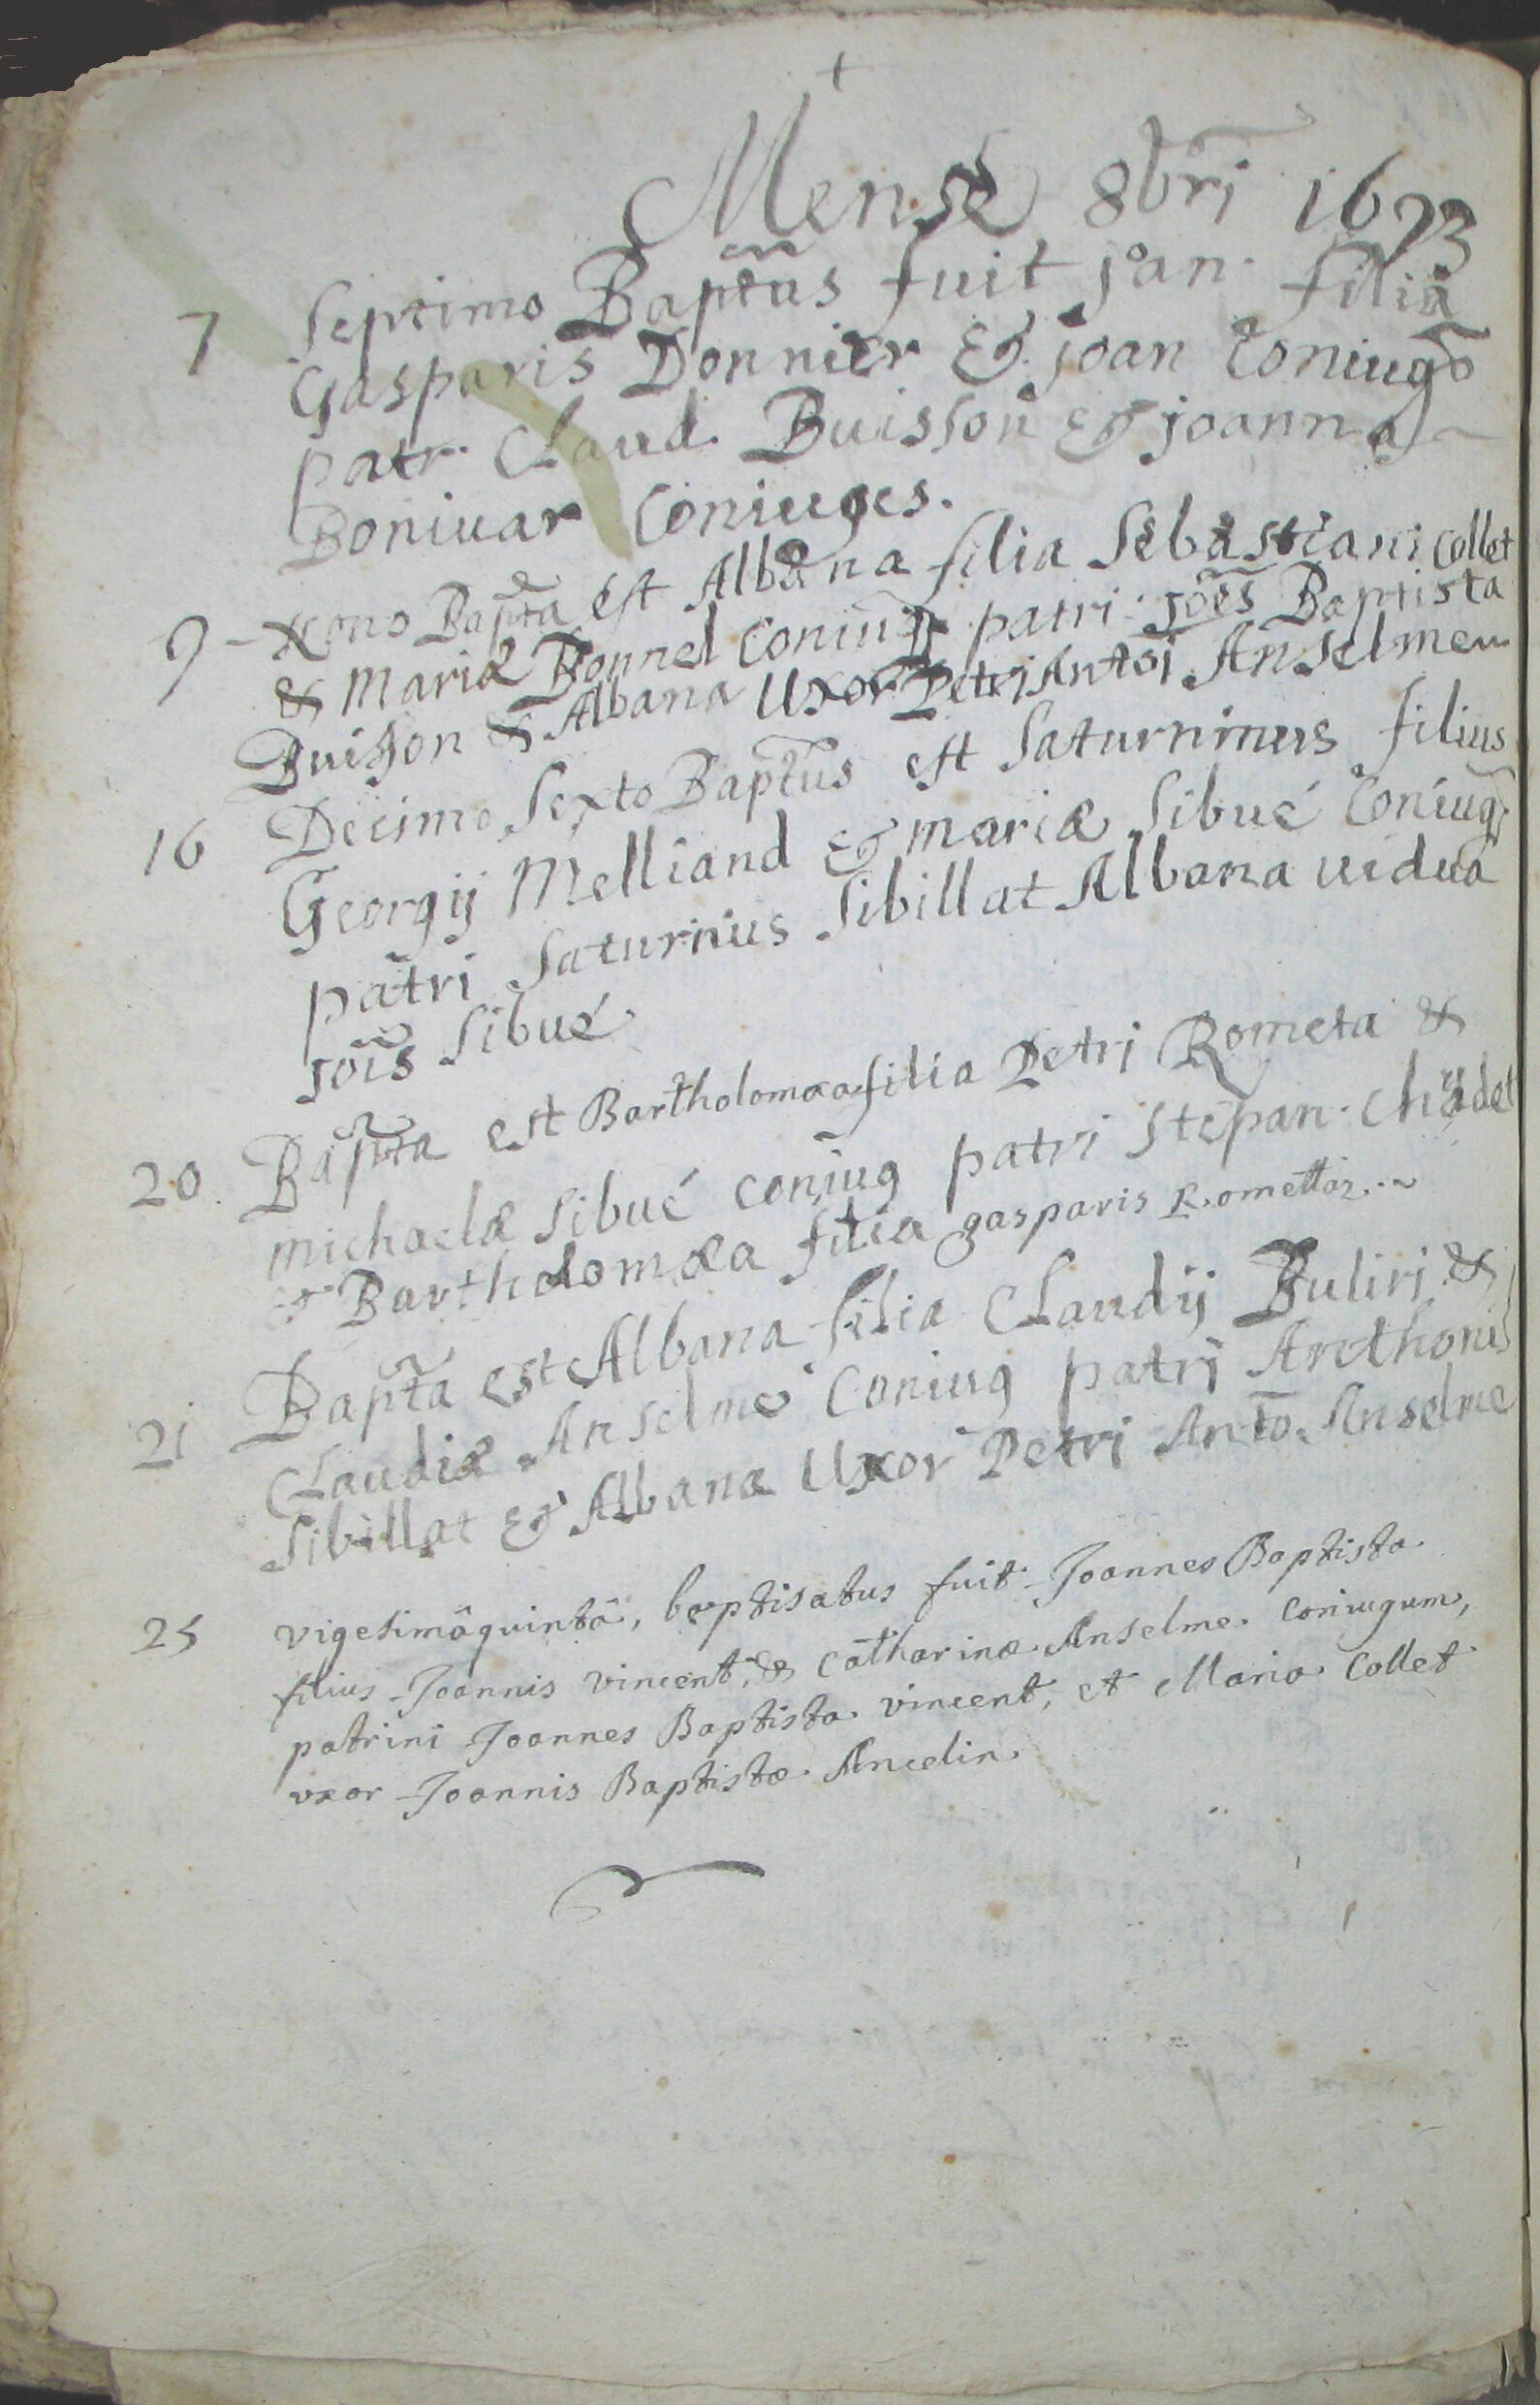 +
Mense 8bri 1673
7 Septimo Bapt̃us fuit joan. filia
Gasparis Donnier & joan Coniugũ
patr. Claud. Buisson & joanna
Boniuar Coniuges.
9 - nono Bapt̃a est Albana filia Sebastiani Collet
& Mariæ Bonnel Coniug patri. joẽs Baptista
Buisson & Albana Uxor Petri Antoi Anselme
16 Decimo Sexto Bapt̃us est Saturninus filius
Georgij Melliand & mariæ Sibué Coniug
patri Saturnius Sibillat Albana uidua
joĩs Sibué
20. Bapt̃a est Bartholomæa filia Petri Rometa &
michaelæ Sibué coniug patri Stepan. Chudet
& Bartholomæa filia gasparis Romettaz.
21 Bapt̃a est Albana filia Claudij Buliri &
Claudiæ Anselme Coniug patri Anthonius
Sibillat & Albana Uxor Petri Anto. Anselme
25 vigesimâquintâ, baptisatus fuit Joannes Baptista
filius Joannis vincent, & catharinæ Anselme Coniugum,
patrini Joannes Baptista vincent, et Maria Collet
vxor Joannis Baptistæ Ancelin.